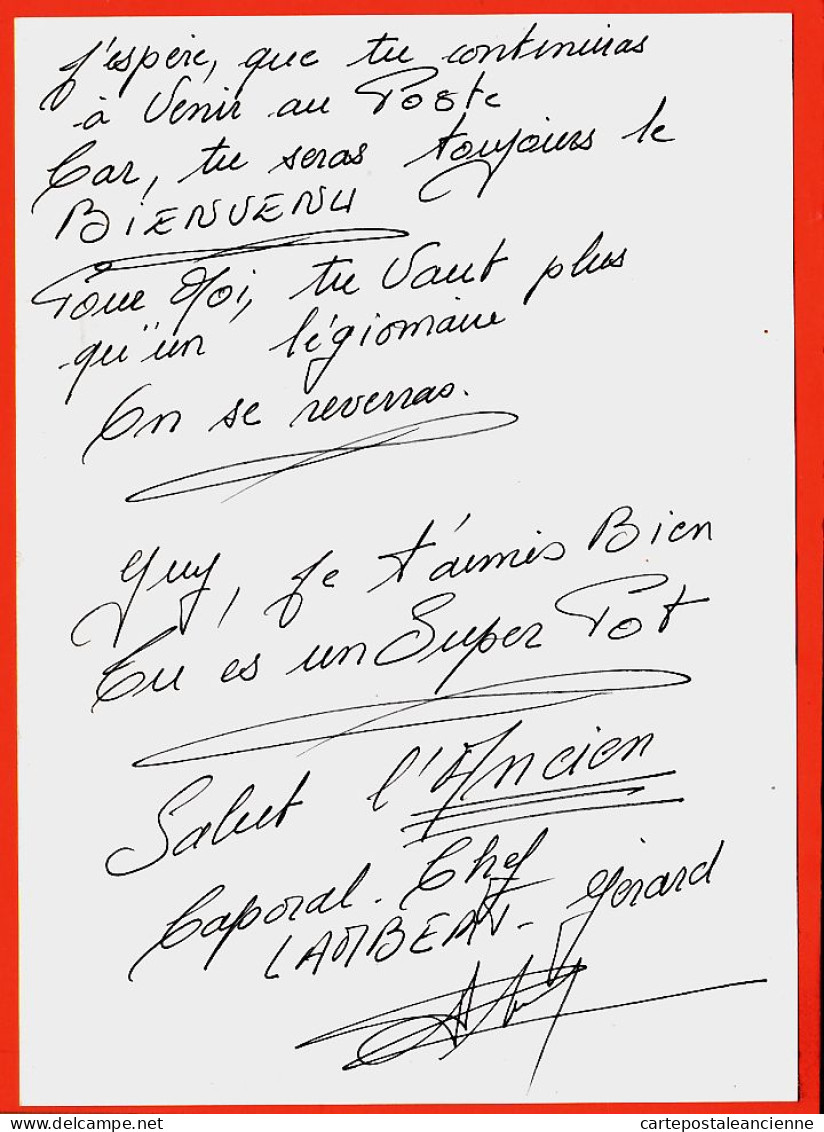 J'espère, que tu contenuiras
à Venir au Poste
Car, tu seras toujours le
BIENVENU
Pour Moi, tu Vaut plus
qu'un légionnaire
On se reverras.
Guy, Je t'aimes Bien
Tu es un Super Pot
Salut l'Ancien
Caporal-Chef
LAMBERT - Gérard
cartepostaleancienne